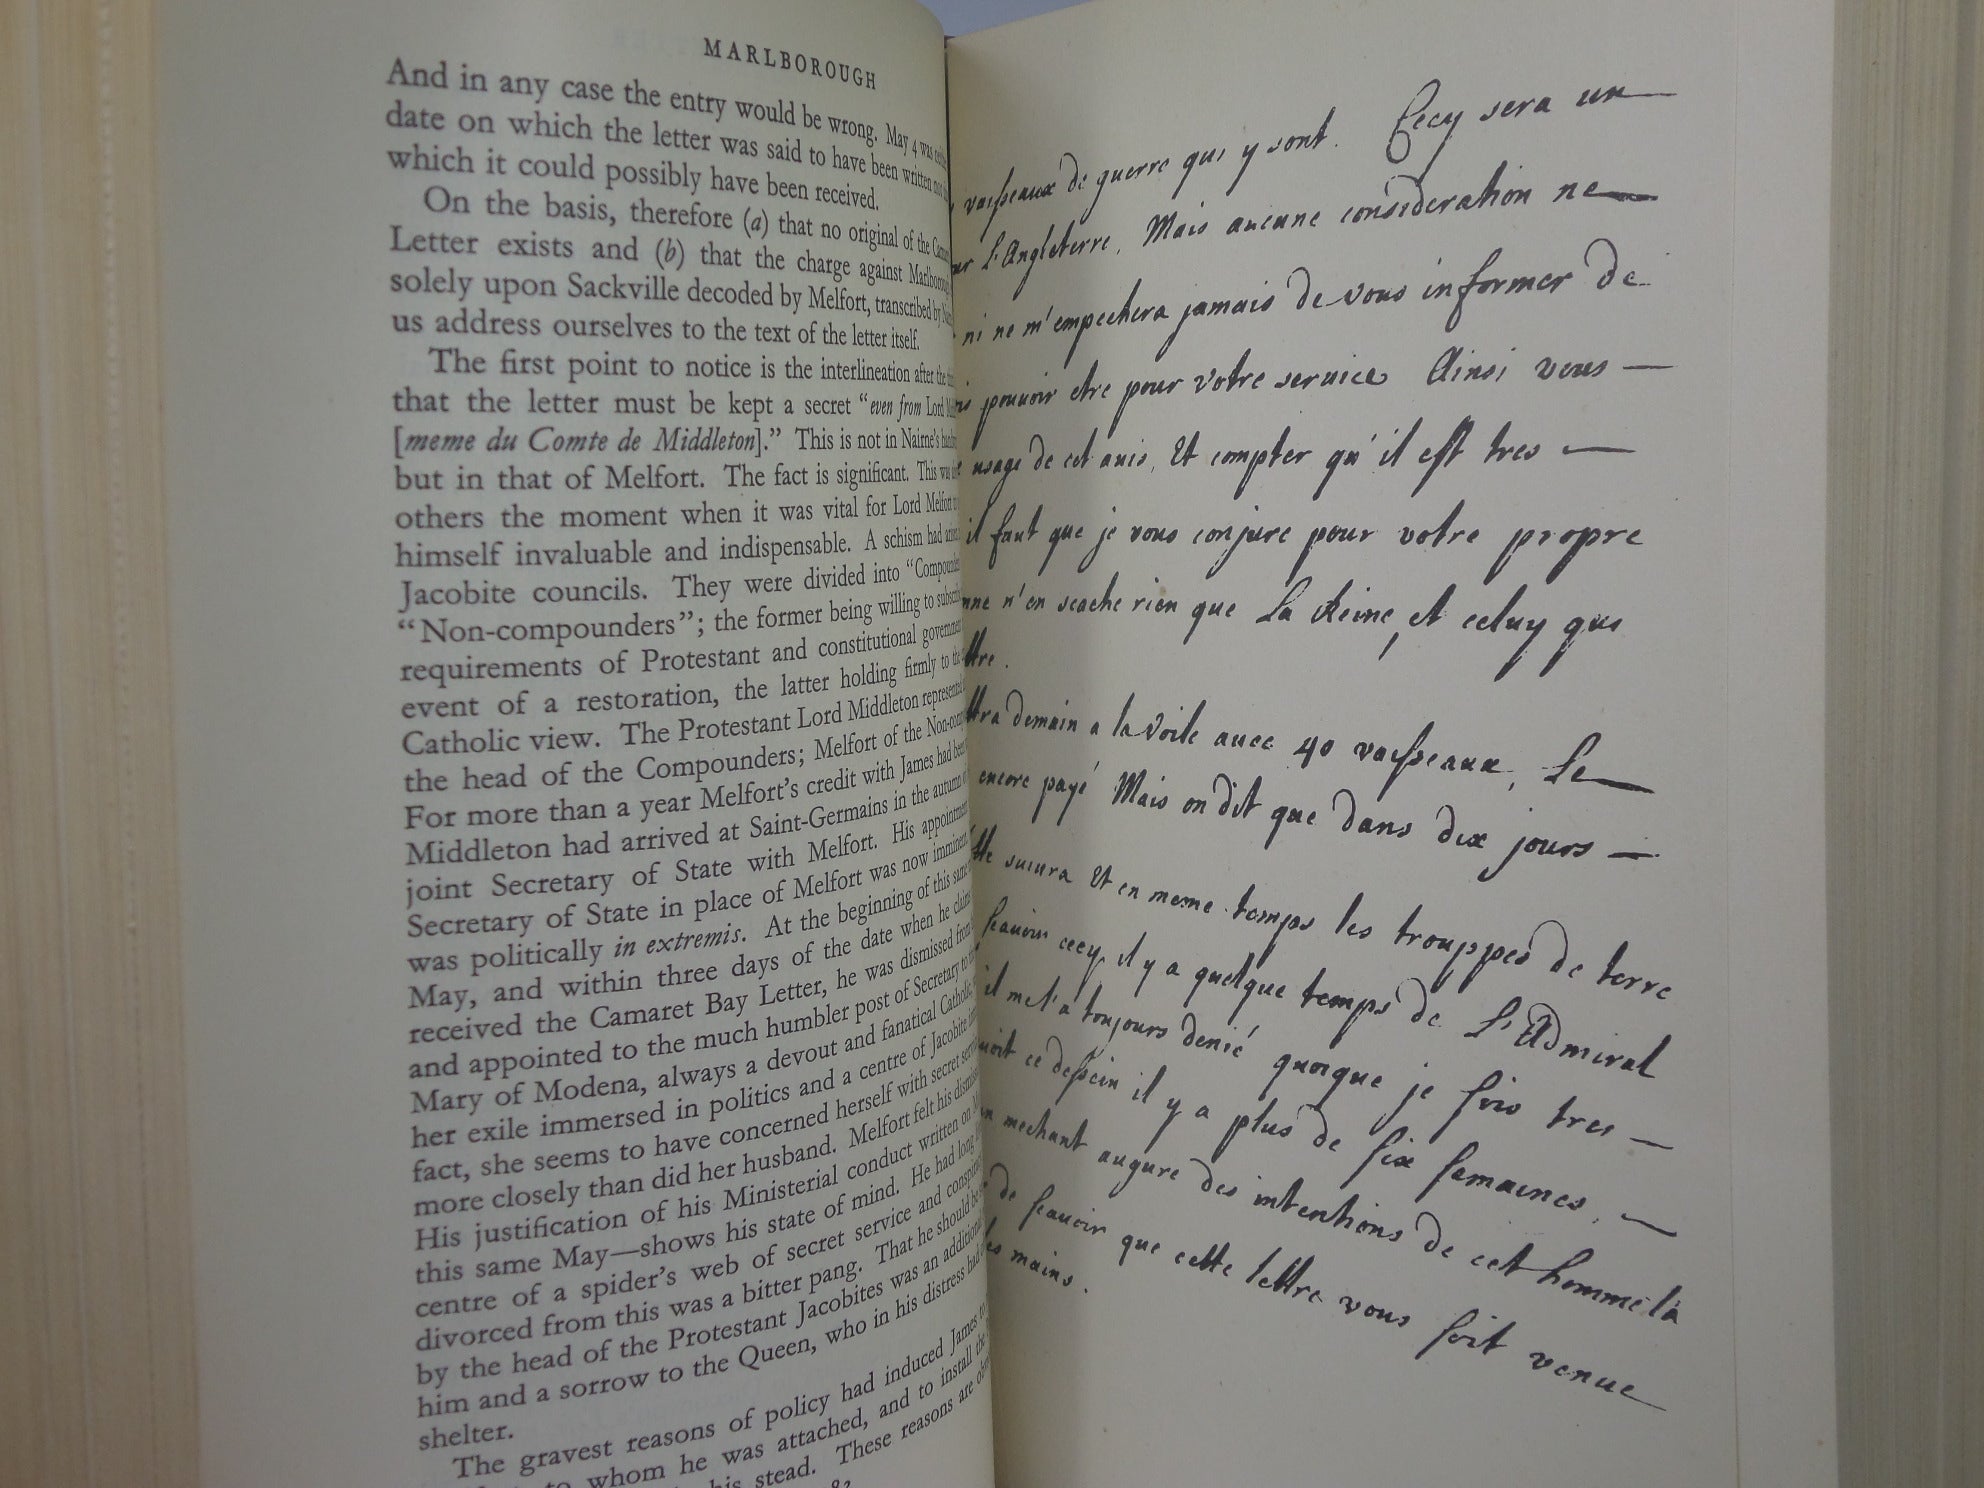 MARLBOROUGH
And in any case the entry would be wrong. May 4 was
date on which the letter was said to have been written
which it could possibly have been received.
On the basis, therefore (a) that no original of the
Letter exists and (b) that the charge against
solely upon Sackville decoded by Melfort, transcribed by
us address ourselves to the text of the letter itself.
The first point to notice is the interlineation after the
that the letter must be kept a secret “even from Lord
[meme du Comte de Middleton].” This is not in Nairne's
but in that of Melfort. The fact is significant. This was
others the moment when it was vital for Lord Melfort
himself invaluable and indispensable. A schism had
Jacobite councils. They were divided into
“Non-compounders”; the former being willing to
requirements of Protestant and constitutional
event of a restoration, the latter holding firmly to the
Catholic view. The Protestant Lord Middleton represented
the head of the Compounders; Melfort of the
For more than a year Melfort's credit with James had
Middleton had arrived at Saint-Germains in the autumn
joint Secretary of State with Melfort. His appointment
Secretary of State in place of Melfort was now imminent.
was politically in extremis. At the beginning of this same
May, and within three days of the date when he
received the Camaret Bay Letter, he was dismissed from
and appointed to the much humbler post of Secretary to
Mary of Modena, always a devout and fanatical Catholic,
her exile immersed in politics and a centre of Jacobite
fact, she seems to have concerned herself with secret
more closely than did her husband. Melfort felt his
His justification of his Ministerial conduct written on
this same May—shows his state of mind. He had long
centre of a spider's web of secret service and
divorced from this was a bitter pang. That he should be
by the head of the Protestant Jacobites was an additional
him and a sorrow to the Queen, who in his distress had
shelter.
The gravest reasons of policy had induced James to
to whom he was attached, and to install the
his stead. These reasons are
vaisseaux de guerre qui y sont. Cecy sera un
L'Angleterre, Mais aucune consideration ne
ni ne m'empechera jamais de vous informer de
pouvoir etre pour votre service Ainsi vous
usage de cet avis, Et compter qu'il est tres
il faut que je vous conjure pour votre propre
n'en scache rien que La Reine, et celuy qui
ttre.
ttra demain a la voile avec 40 vaisseaux, Le
encore payé Mais on dit que dans dix jours
suivra Et en meme temps les trouppes de terre
scavoir cecy, il y a quelque temps de L'Admiral
il me l'a toujours denié quoique je sois tres
ce dessein il y a plus de six semaines,
mechant augure des intentions de cet homme là
de scavoir que cette lettre vous soit venue
mains.